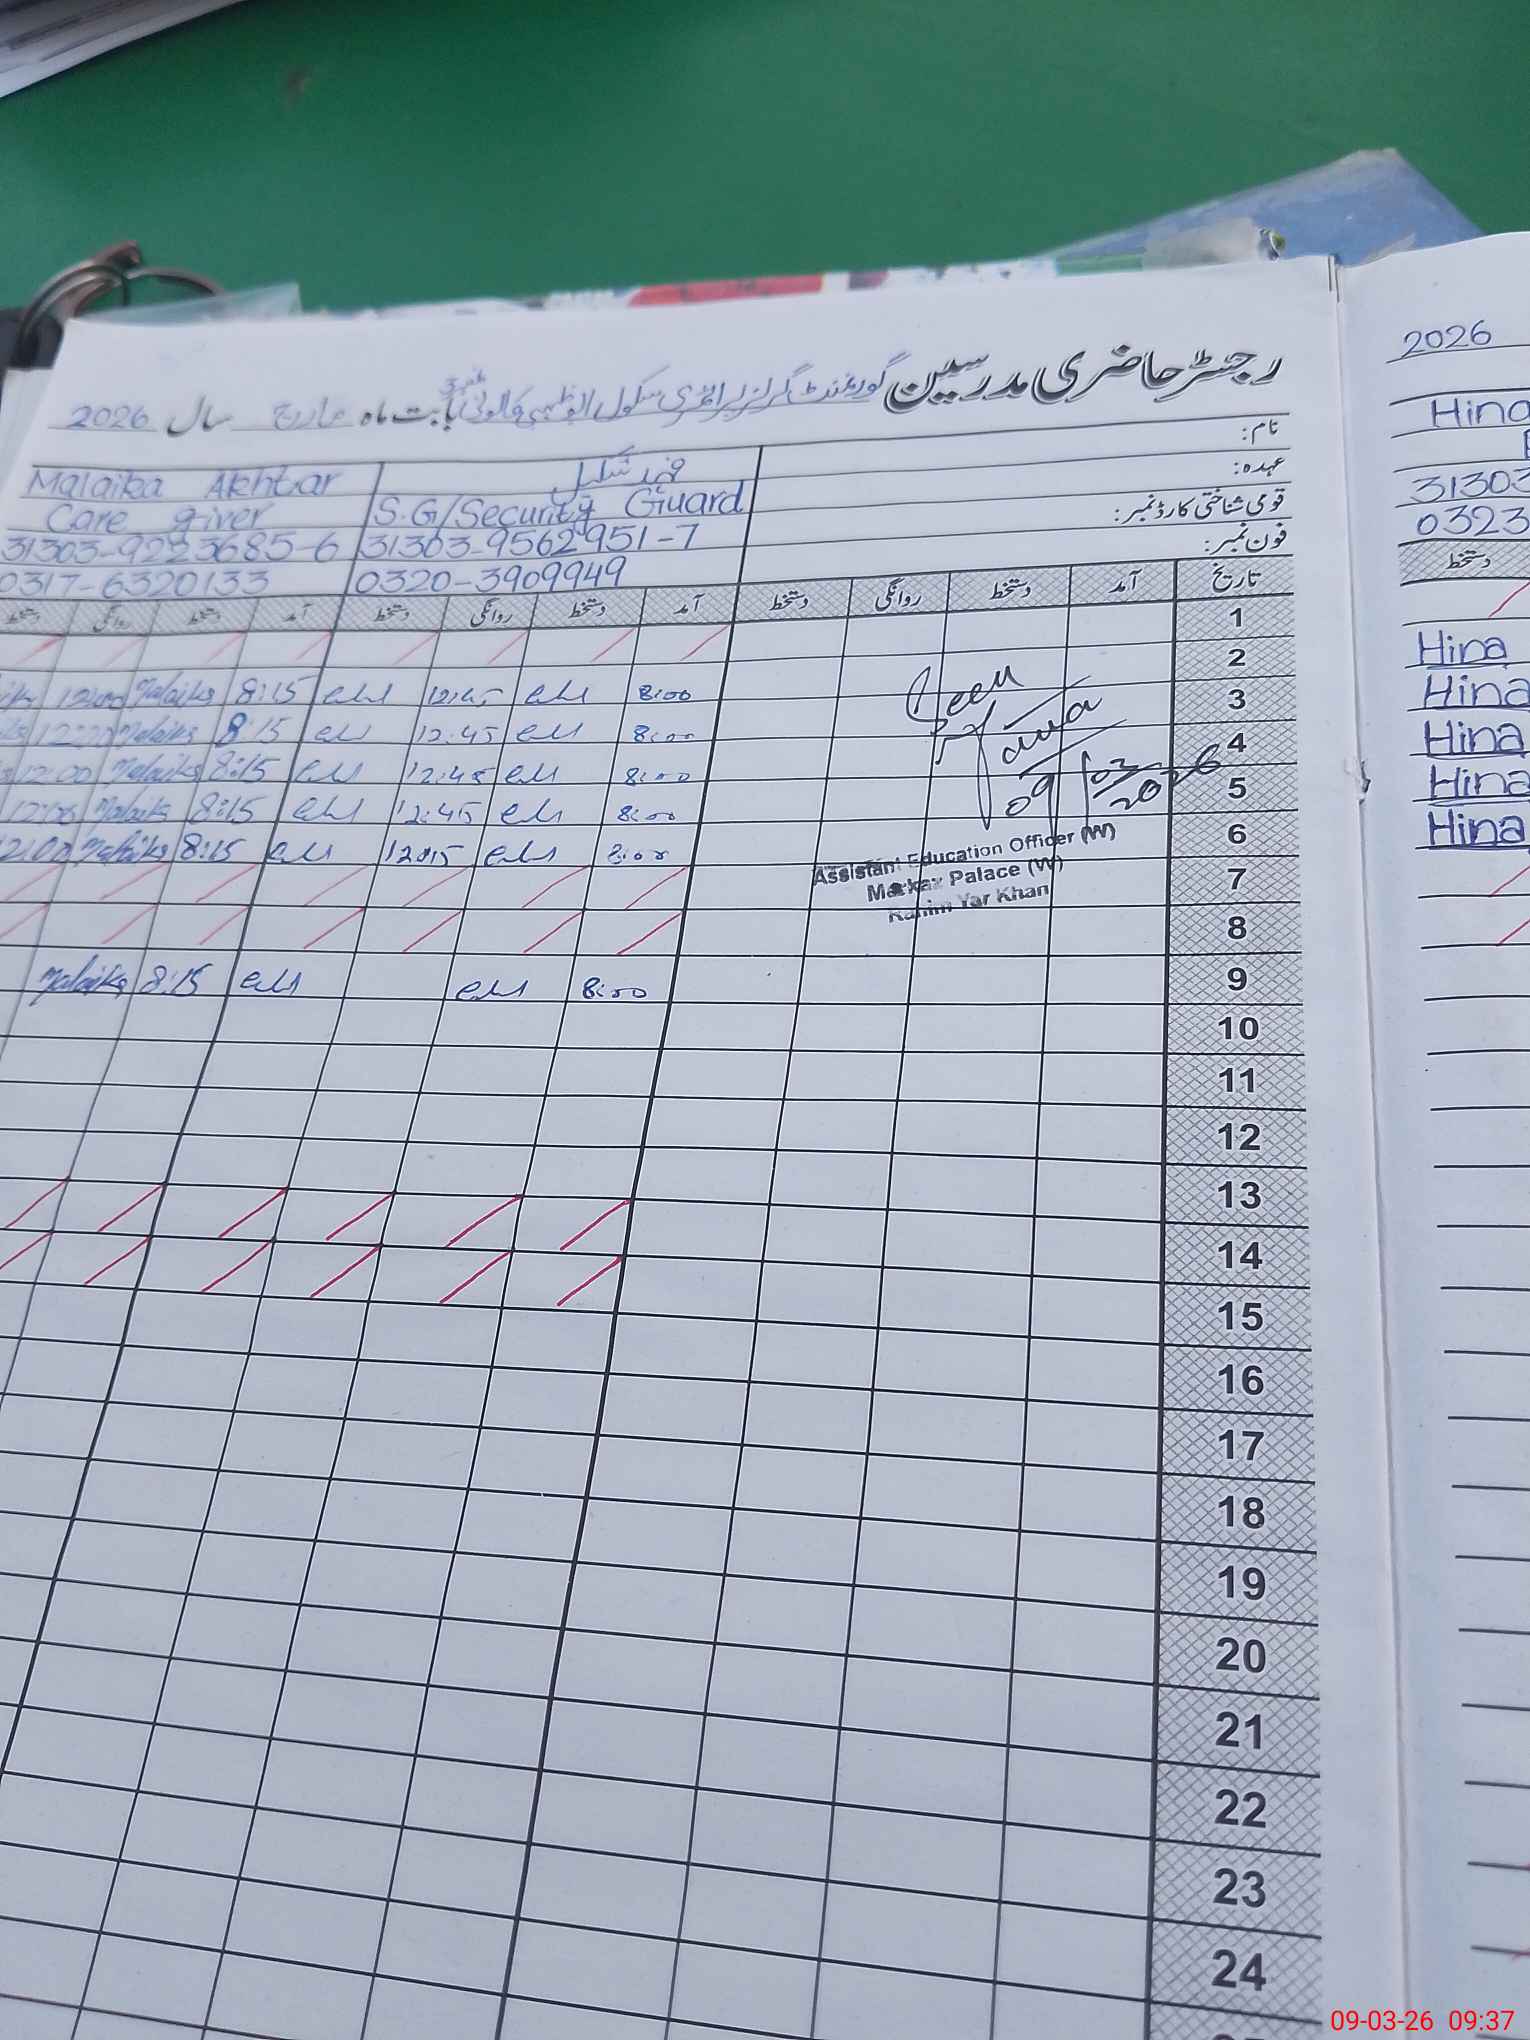 رجسٹر حاضری مدرسین گورنمنٹ گرلز پرائمری سکول ابوظہبی کالونی نمبر 3 بابت ماہ مارچ سال 2026
نام:
عہدہ:
قومی شناختی کارڈ نمبر:
فون نمبر:
فہد شکیل
S.G/Security Guard
31303-9562951-7
0320-3909949
Malaika Akhtar
Care giver
31303-9223685-6
0317-6320133
تاریخ آمد دستخط روانگی دستخط آمد دستخط روانگی دستخط آمد دستخط روانگی دستخط
1
2 8:00 12:45 8:15 Malaika 12:00
3 8:00 12:45 8:15 Malaika 12:20
4 8:00 12:45 8:15 Malaika 12:00
5 8:00 12:45 8:15 Malaika 12:00
6 8:00 12:15 8:15 Malaika 12:00
7
8
9 8:00 8:15 Malaika
10
11
12
13
14
15
16
17
18
19
20
21
22
23
24
Seen
09/03/2026
Assistant Education Officer (W)
Markaz Palace (W)
Rahim Yar Khan
2026
Hina
31303
0323
دستخط
Hina
Hina
Hina
Hina
Hina
09-03-26 09:37